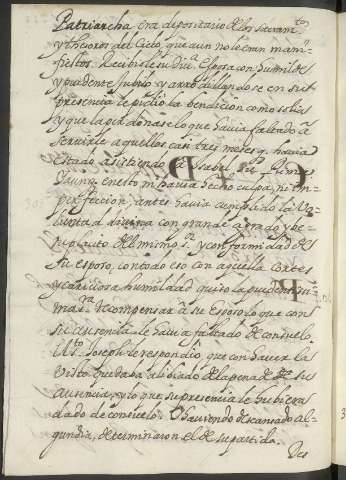 Patriarcha era depositario de los sacram.tos
y thesoros del Cielo, que aun no le eran mani-
fiestos. Recibiole su Diu.a Esposa con humildes
y prudente jubilo y arrodillandose en su
presencia le pidio la bendicion como solia
y que la perdonase lo que hauia faltado à
seruirle aquellos casi tres meses q. hauia
estado asistendo à Isabel su Prima
Y aunq. en esto ni hauia hecho culpa, ni im-
perfeccion, antes hauia cumplido la Vo-
luntad diuina con grande agrado y be-
neplacito del mismo S.r y conformidad de
su esposo, con todo eso con aquella cortes
y cariciosa humildad quiso la prudentisi-
ma S.ra recompensar à su Esposo lo que con
su ausencia le hauia faltado de consuelo.
El S.to Joseph le respondio que con hauer la
visto quedaba alibiado de la pena de su
ausencia, y lo que su presencia le hubiera
dado de consuelo. Y hauiendo descansado al-
gun dia, determinaron el de su partida.
Des